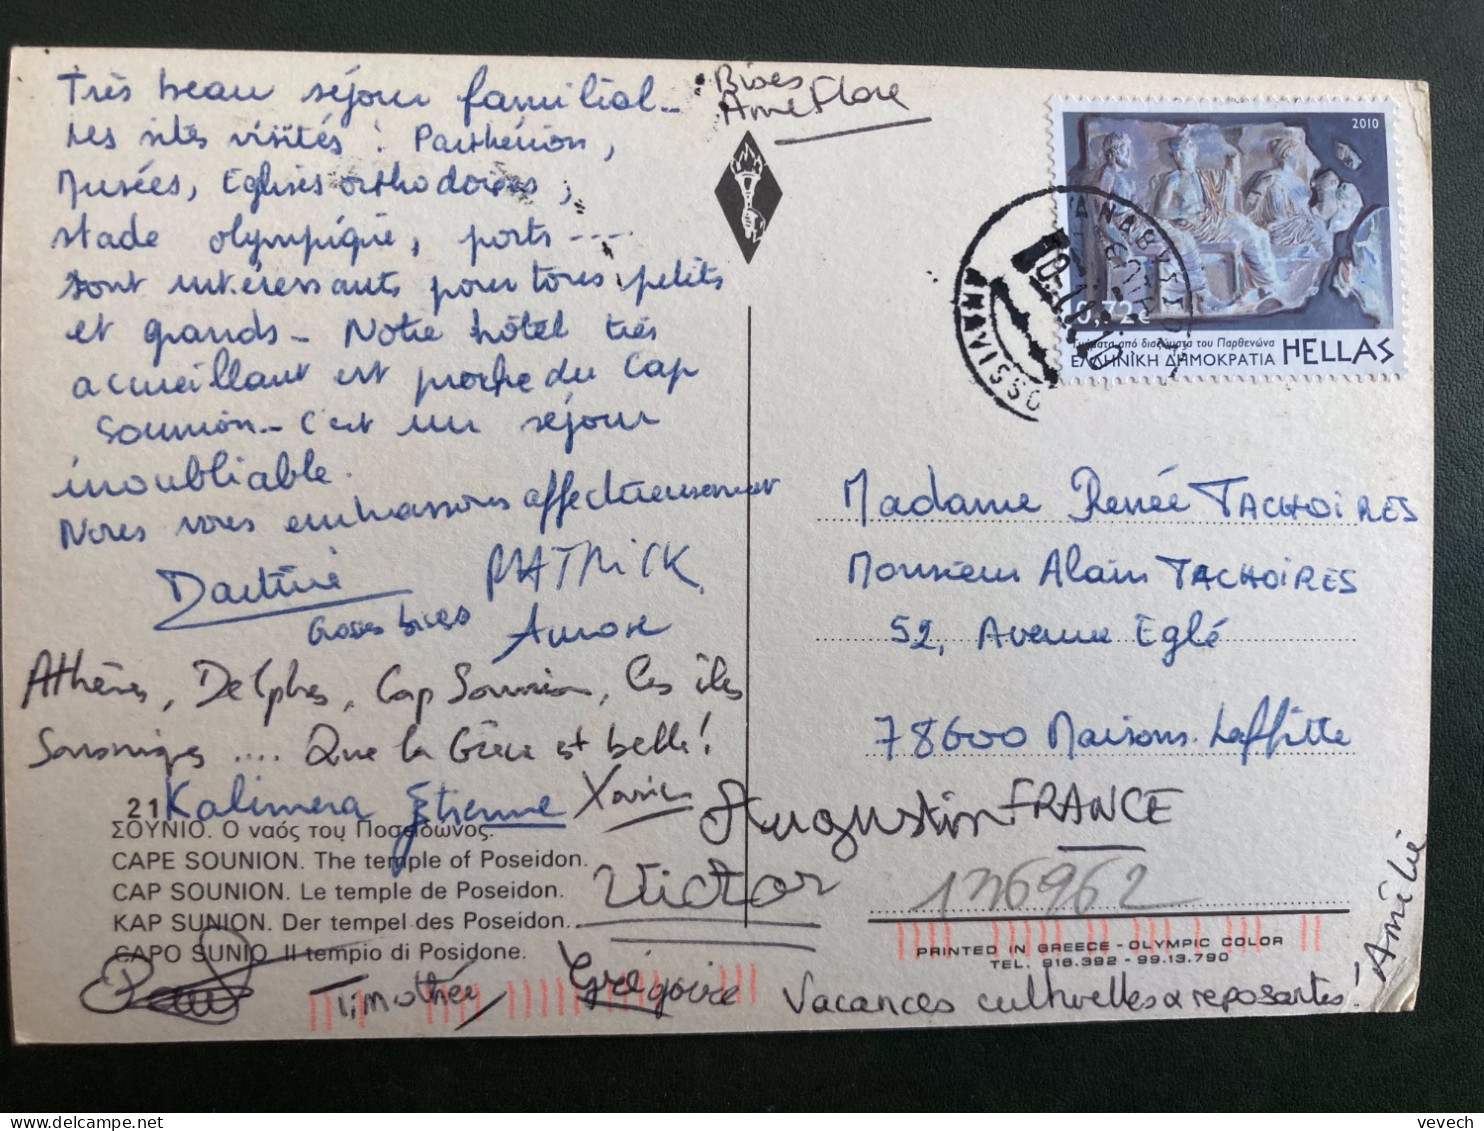 Très beau séjour familial -
Les sites visités : Parthénon,
Musées, Eglises orthodoxes,
stade olympique, ports ....
sont intéressants pour tous, petits
et grands - Notre hôtel très
accueillant est proche du Cap
Sounion - C'est un séjour
inoubliable.
Nous vous embrassons affectueusement
Martine PATRICK
Grosses bises
Athènes, Delphes, Cap Sounion, les îles
Saroniques .... Que la Grèce est belle !
Kalimera Etienne Xavier
Augustin
Victor
Timothée Grégoire
Bises
Anne Flore
21
ΣΟΥΝΙΟ. Ο ναός του Ποσειδώνος.
CAPE SOUNION. The temple of Poseidon.
CAP SOUNION. Le temple de Poseidon.
KAP SUNION. Der tempel des Poseidon.
CAPO SUNIO. Il tempio di Posidone.
2010
0,72€
Τμήματα από διαζώματα του Παρθενώνα
ΕΛΛΗΝΙΚΗ ΔΗΜΟΚΡΑΤΙΑ HELLAS
ANAVISSOS
Madame Renée TACHOIRES
Monsieur Alain TACHOIRES
52, Avenue Eglé
78600 Maisons-Laffitte
FRANCE
136962
PRINTED IN GREECE - OLYMPIC COLOR
TEL. 916.392 - 99.13.790
Vacances culturelles & reposantes !
Amélie
vevech